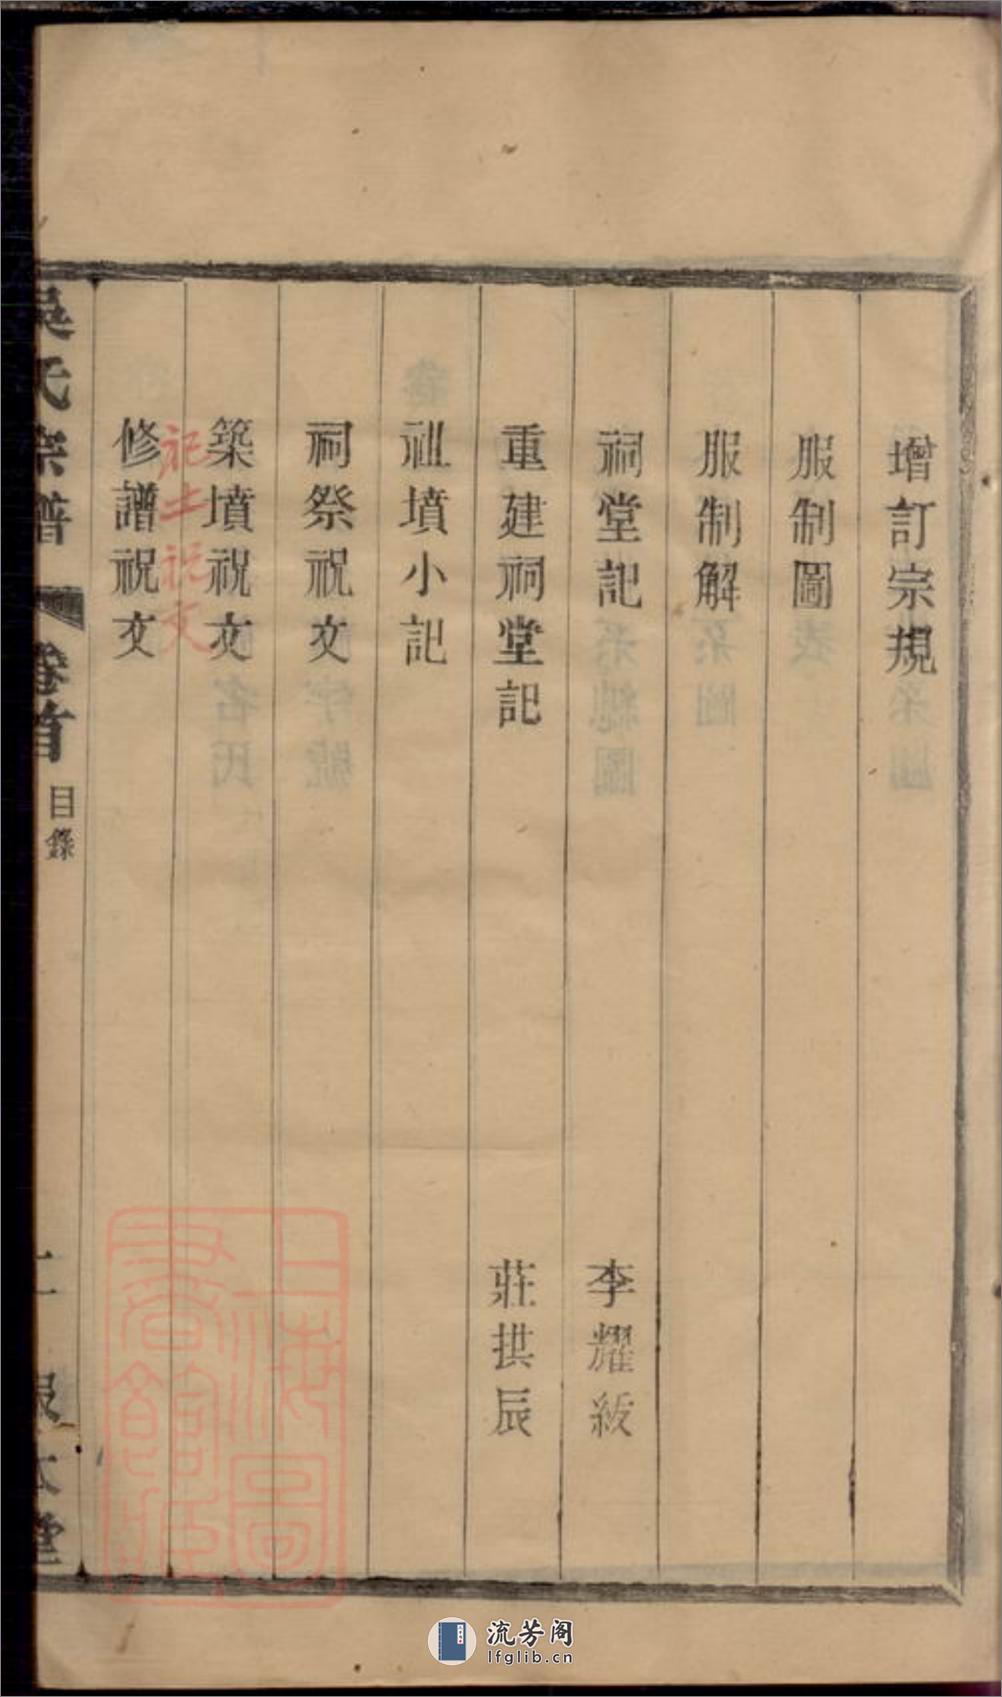 增訂宗規
服制圖
服制解
祠堂記 李耀紱
重建祠堂記 莊拱辰
祖墳小記
祠祭祝文
築墳祝文
祀土祝文
修譜祝文
吳氏宗譜 卷首 目錄 二 報本堂
上海圖書館藏
流芳阁
lfglib.cn